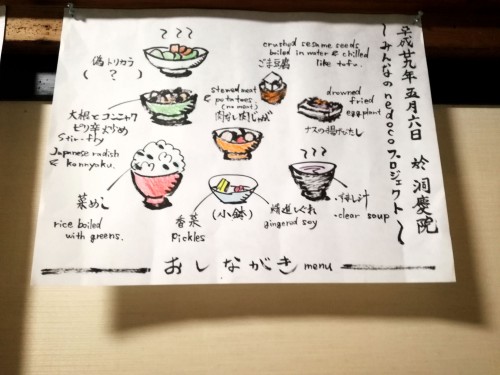 平成廿九年 五月六日 於 洞慶院
〜みんなのnedocoプロジェクト〜
偽トリカラ
( ? )
crushed sesame seeds
boiled in water & chilled
like tofu.
ごま豆腐
大根とコンニャク
ピリ辛炒め
Stir-fry
Japanese radish
& konnyaku.
stewed meat
& potatoes
(no meat)
肉なし肉じゃが
drowned
fried
eggplant
ナスの揚げびたし
菜めし
rice boiled
with greens.
香菜
Pickles
(小鉢)
精進しぐれ
gingered soy
すまし汁
-clear soup
おしながき menu